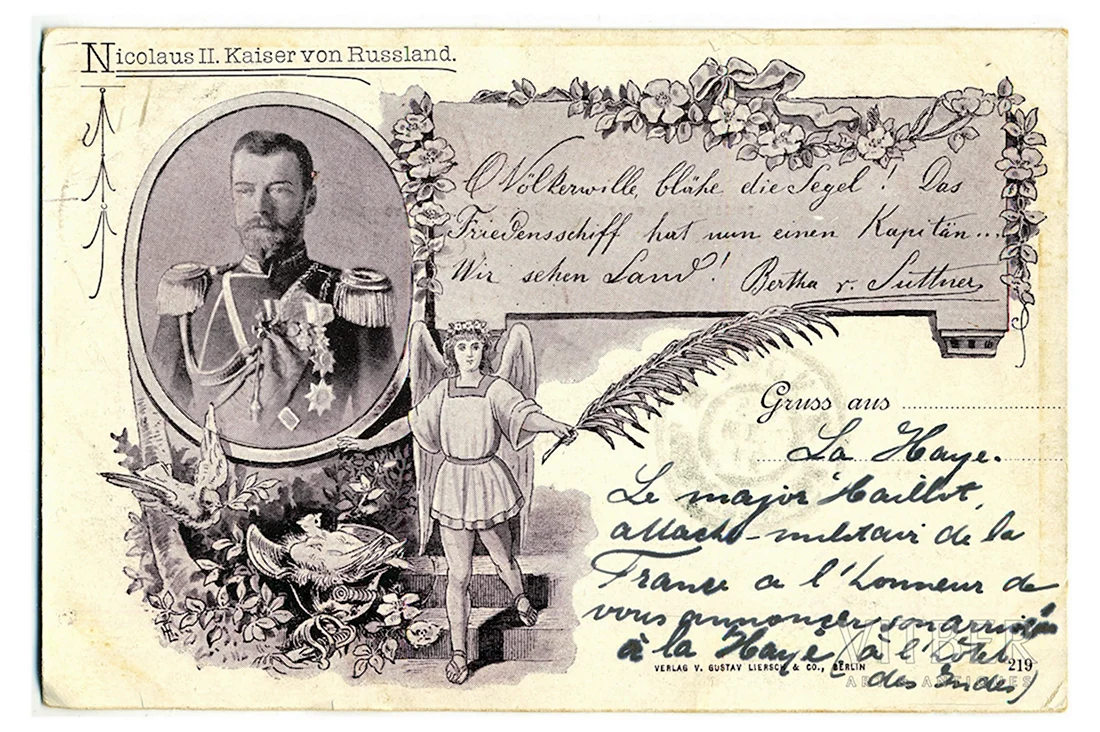 Nicolaus II. Kaiser von Russland.
O Völkerwille, blähe die Segel! Das
Friedensschiff hat nun einen Kapitän...
Wir sehen Land! Bertha v. Suttner
Gruss aus
La Haye.
Le major Haillot,
attaché-militair de la
France a l'honneur de
vous annonçer son arrivée
à la Haye, à l'otel
des Indes)
VERLAG V. GUSTAV LIERSCH & CO., BERLIN
219
VITBER
ART & ANTIQUES